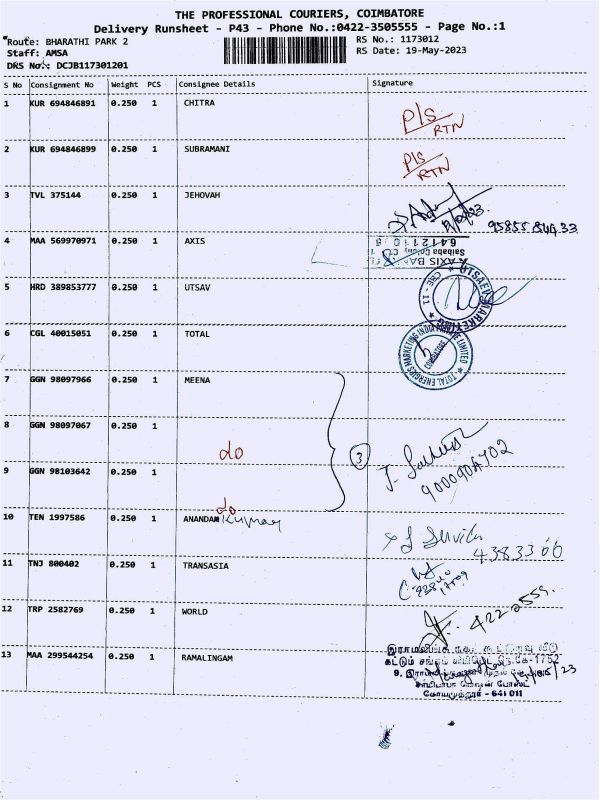 THE PROFESSIONAL COURIERS, COIMBATORE
Delivery Runsheet - P43 - Phone No.:0422-3505555 - Page No.:1
Route: BHARATHI PARK 2 RS No.: 1173012
Staff: AMSA RS Date: 19-May-2023
DRS No.: DCJB117301201
S No Consignment No Weight PCS Consignee Details Signature
1 KUR 694846891 0.250 1 CHITRA P/S RTN
2 KUR 694846899 0.250 1 SUBRAMANI P/S RTN
3 TVL 375144 0.250 1 JEHOVAH
4 MAA 569970971 0.250 1 AXIS AXIS BANK
Saibaba Colony
5 HRD 389853777 0.250 1 UTSAV UTSAV MARKETING * CBE - 11 *
6 CGL 40015051 0.250 1 TOTAL TOTAL ENERGIES MARKETING INDIA PRIVATE LIMITED COIMBATORE
7 GGN 98097966 0.250 1 MEENA
8 GGN 98097067 0.250 1 do 3
9 GGN 98103642 0.250 1 do
10 TEN 1997586 0.250 1 ANANDAM Kumar
11 TNJ 800402 0.250 1 TRANSASIA
12 TRP 2582769 0.250 1 WORLD
13 MAA 299544254 0.250 1 RAMALINGAM
கட்டும் சங்கம்
கோயமுத்தூர் - 641 011